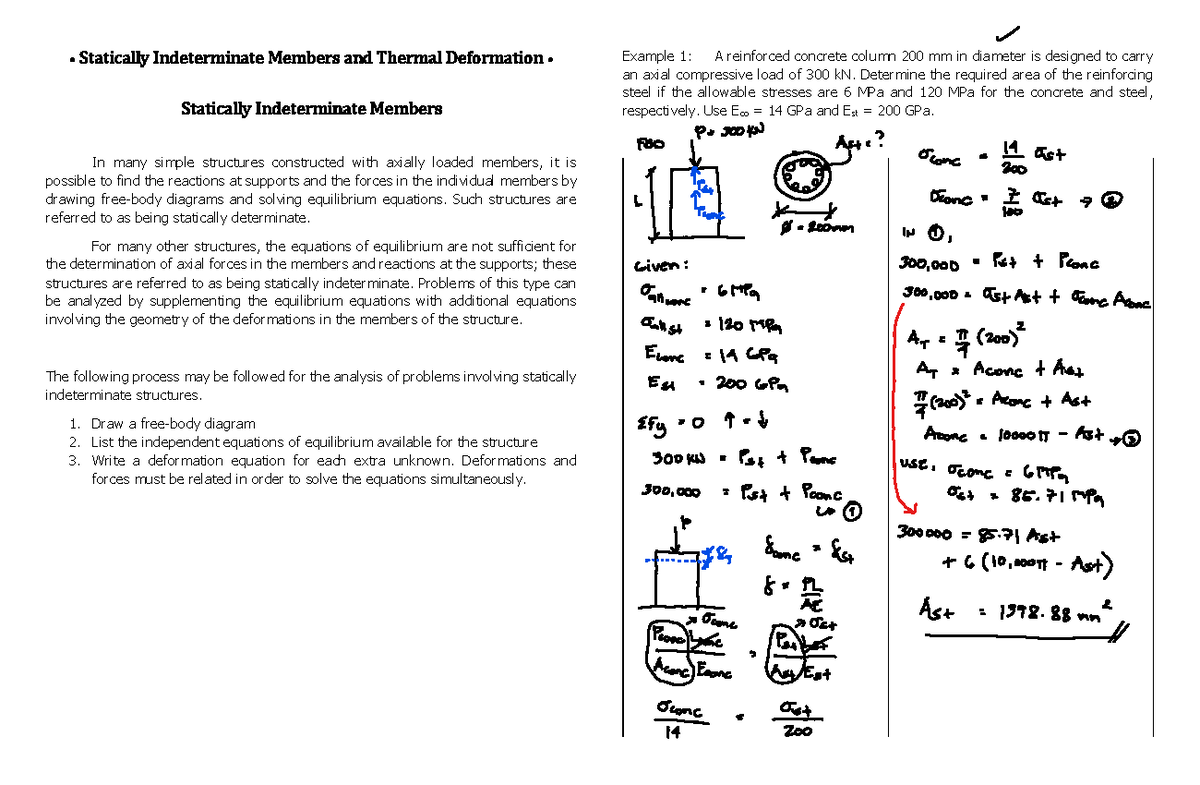 • Statically Indeterminate Members and Thermal Deformation •
Statically Indeterminate Members
In many simple structures constructed with axially loaded members, it is
possible to find the reactions at supports and the forces in the individual members by
drawing free-body diagrams and solving equilibrium equations. Such structures are
referred to as being statically determinate.
For many other structures, the equations of equilibrium are not sufficient for
the determination of axial forces in the members and reactions at the supports; these
structures are referred to as being statically indeterminate. Problems of this type can
be analyzed by supplementing the equilibrium equations with additional equations
involving the geometry of the deformations in the members of the structure.
The following process may be followed for the analysis of problems involving statically
indeterminate structures.
1. Draw a free-body diagram
2. List the independent equations of equilibrium available for the structure
3. Write a deformation equation for each extra unknown. Deformations and
forces must be related in order to solve the equations simultaneously.
Example 1: A reinforced concrete column 200 mm in diameter is designed to carry
an axial compressive load of 300 kN. Determine the required area of the reinforcing
steel if the allowable stresses are 6 MPa and 120 MPa for the concrete and steel,
respectively. Use Eco = 14 GPa and Est = 200 GPa.
FBD
P = 300 kN
Ast = ?
L
Pst
Pconc
ø = 200mm
Given:
σall conc = 6 MPa
σall st = 120 MPa
Econc = 14 GPa
Est = 200 GPa
ΣFy = 0 ↑ = ↓
300 kN = Pst + Pconc
300,000 = Pst + Pconc
↳ ①
P
δconc = δst
δ = PL/AE
σconc
σst
Pconc Lconc / Aconc Econc = Pst Lst / Ast Est
σconc/14 = σst/200
σconc = 14/200 σst
σconc = 7/100 σst → ②
IN ①,
300,000 = Pst + Pconc
300,000 = σst Ast + σconc Aconc
AT = π/4 (200)²
AT = Aconc + Ast
π/4 (200)² = Aconc + Ast
Aconc = 10000π - Ast → ③
use, σconc = 6 MPa
σst = 85.71 MPa
300000 = 85.71 Ast
+ 6 (10,000π - Ast)
Ast = 1398.88 mm²